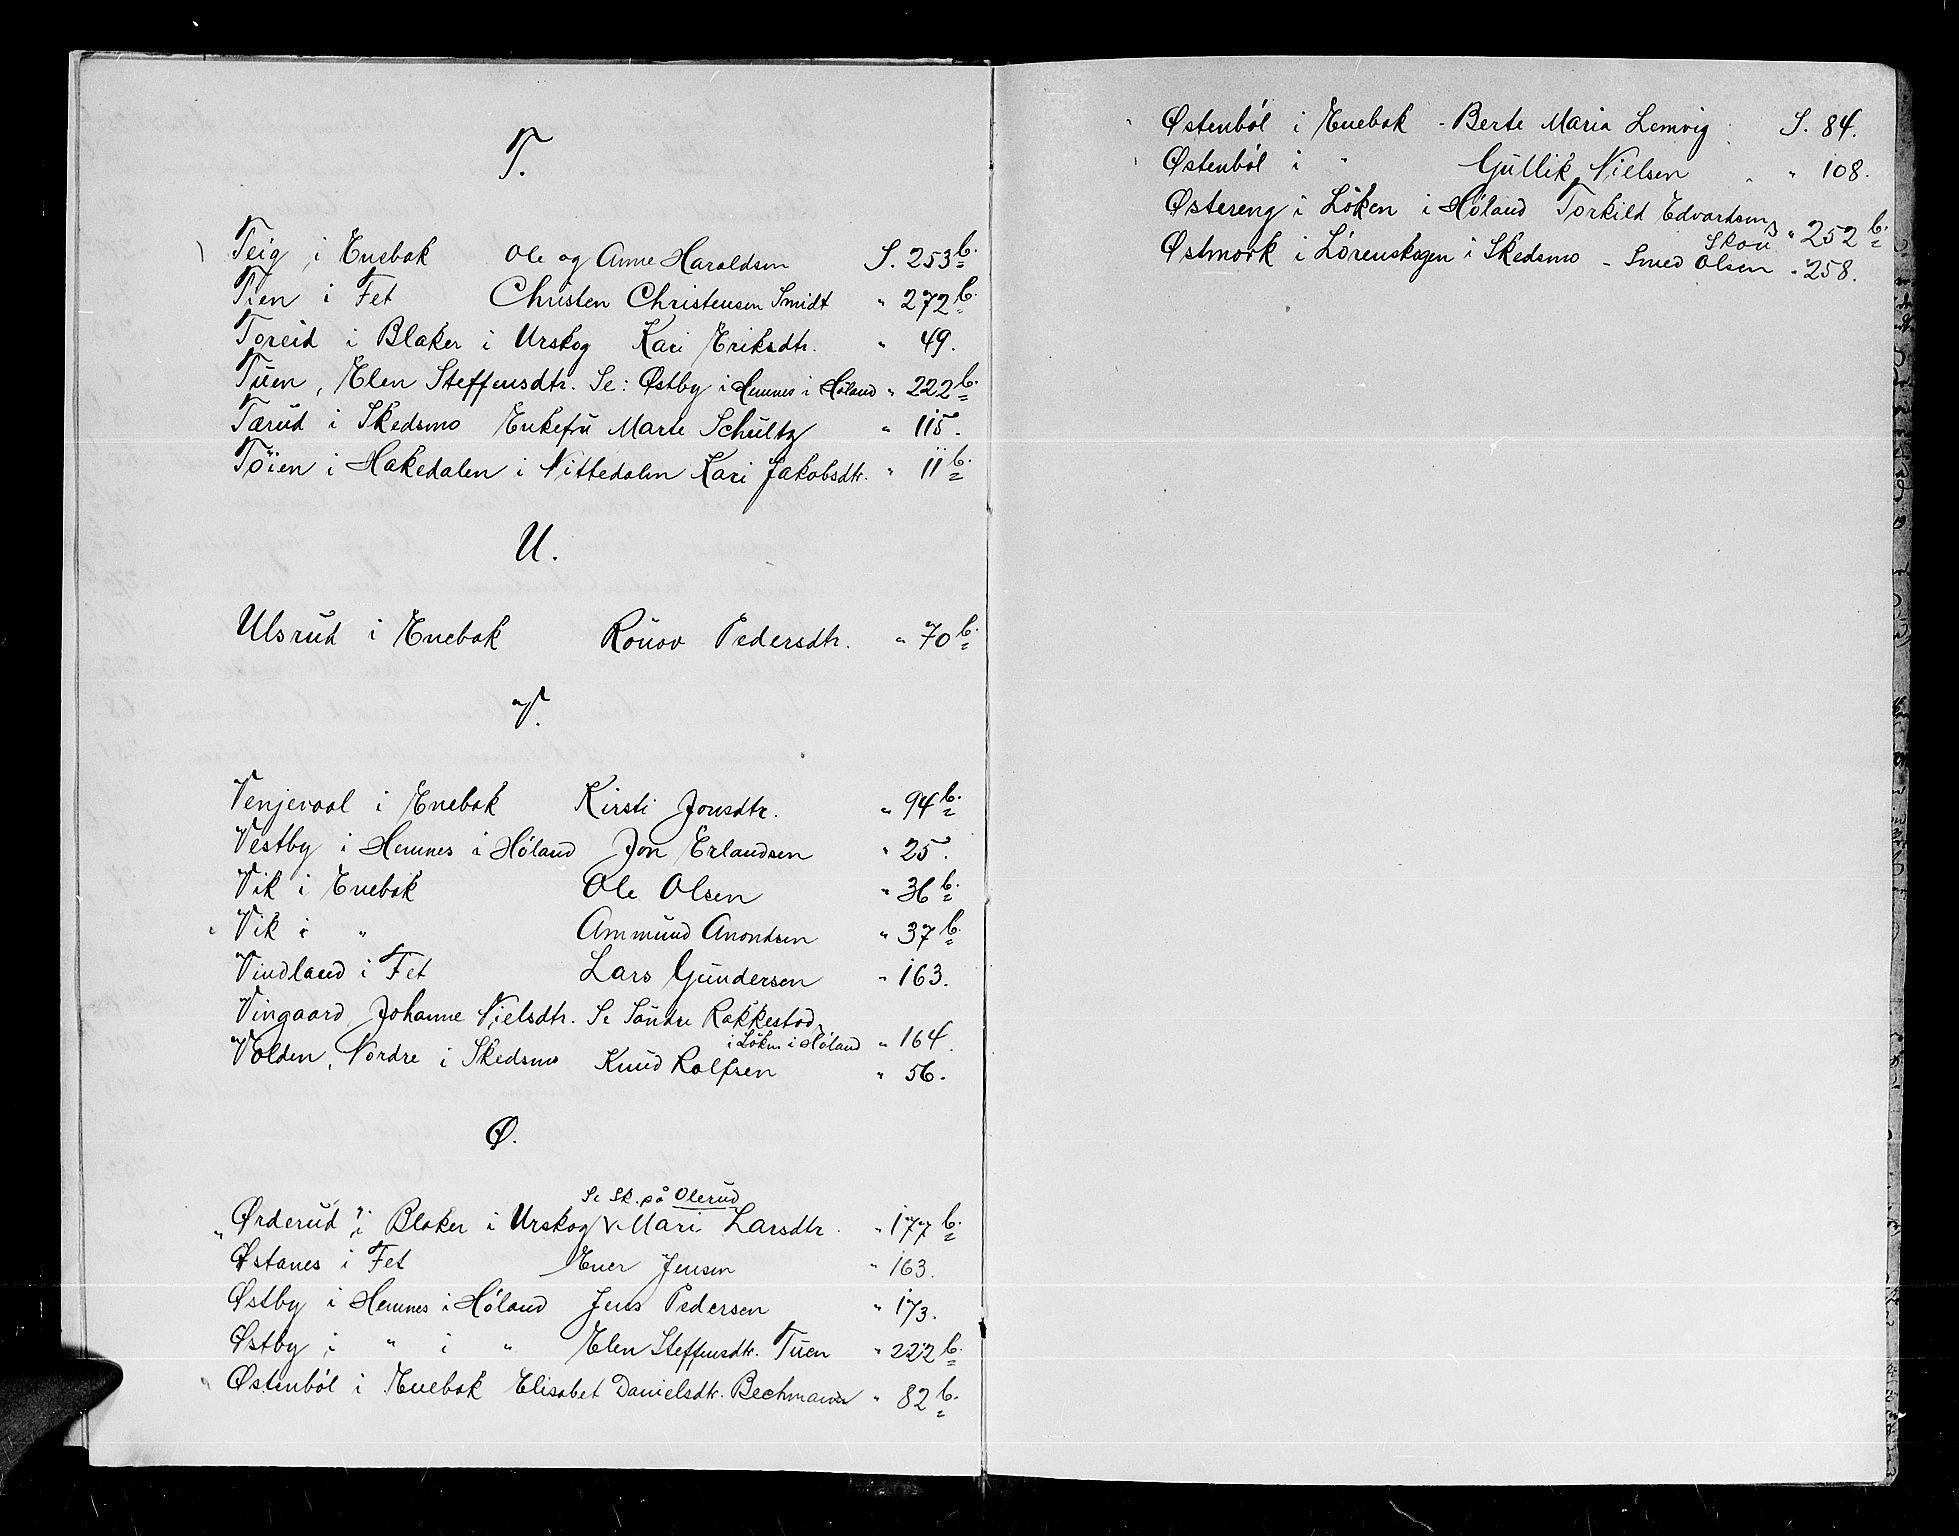 T.
Teig i Enebak Ole og Anne Haraldsen S. 253 b.
Tien i Fet Christen Christensen Smidt " 272 b.
Toreid i Blaker i Urskog Kari Eriksdtr. " 49.
Tuen, Elen Steffensdtr. Se: Østby i Hemnes i Høland " 222 b.
Tærud i Skedsmo Enkefru Marte Schultz " 115.
Tøien i Hakedalen i Nittedalen Kari Jakobsdtr. " 11 b.
U.
Ulsrud i Enebak Rønov Pedersdtr. " 70 b.
V.
Venjevaal i Enebak Kirsti Jonsdtr. " 94 b.
Vestby i Hemnes i Høland Jon Erlandsen " 25.
Vik i Enebak Ole Olsen " 36 b.
Vik i " Ammund Anondsen " 37 b.
Vindland i Fet Lars Gundersen " 163.
Vingaard, Johanne Nielsdtr. Se Søndre Rakkestad
i Løken i Høland " 164.
Volden, Nordre i Skedsmo Knud Rolfsen " 56.
Ø.
Se Sk. på Olerud
"Ørderud"? i Blaker i Urskog Mari Larsdtr. " 177 b.
Østanes i Fet Ener Jensen " 163.
Østby i Hemnes i Høland Jens Pedersen " 173.
Østby i " i " Elen Steffensdtr. Tuen " 222 b.
Østenbøl i Enebak Elisabet Danielsdtr. Bechmann " 82 b.
Østenbøl i Enebak - Berte Maria Lemvig S. 84.
Østenbøl i " Gullik Nielsen " " 108.
Østereng i Løken i Høland Torkild Edvardsen
Skou " 252 b.
Østmork i Lørenskogen i Skedsmo - Smed Olsen " 258.